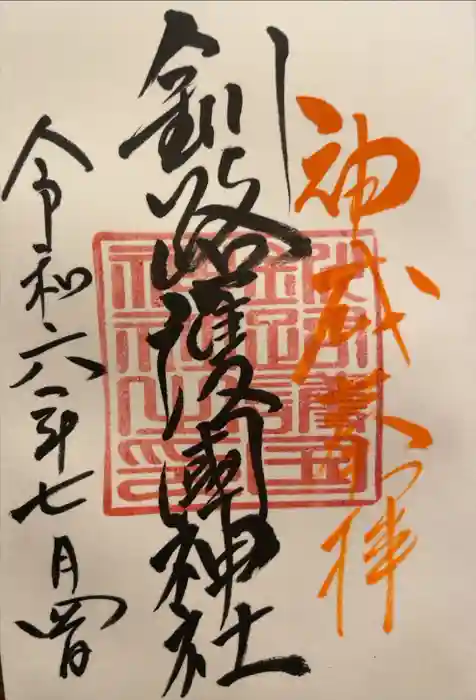 神威奉拝
釧路護國神社
令和六年七月四日